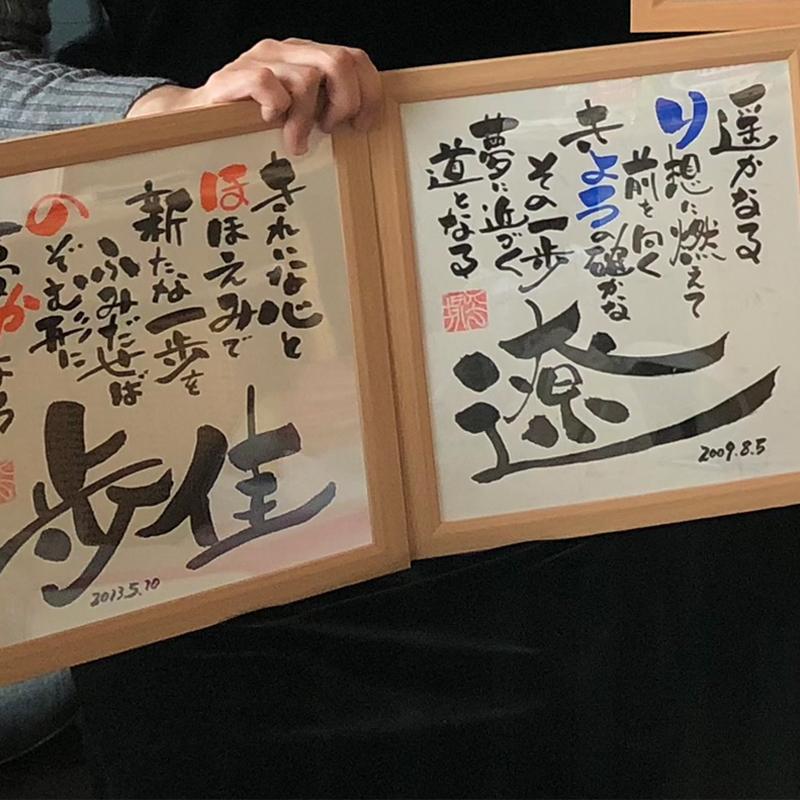 遥かなる
り想に燃えて
前を向く
きょうの確かな
その一歩
夢に近づく
道となる
遼
2009.8.5
きれいな心と
ほほえみで
新たな一歩を
ふみだせば
のぞむ形に
佳歩
2013.5.10